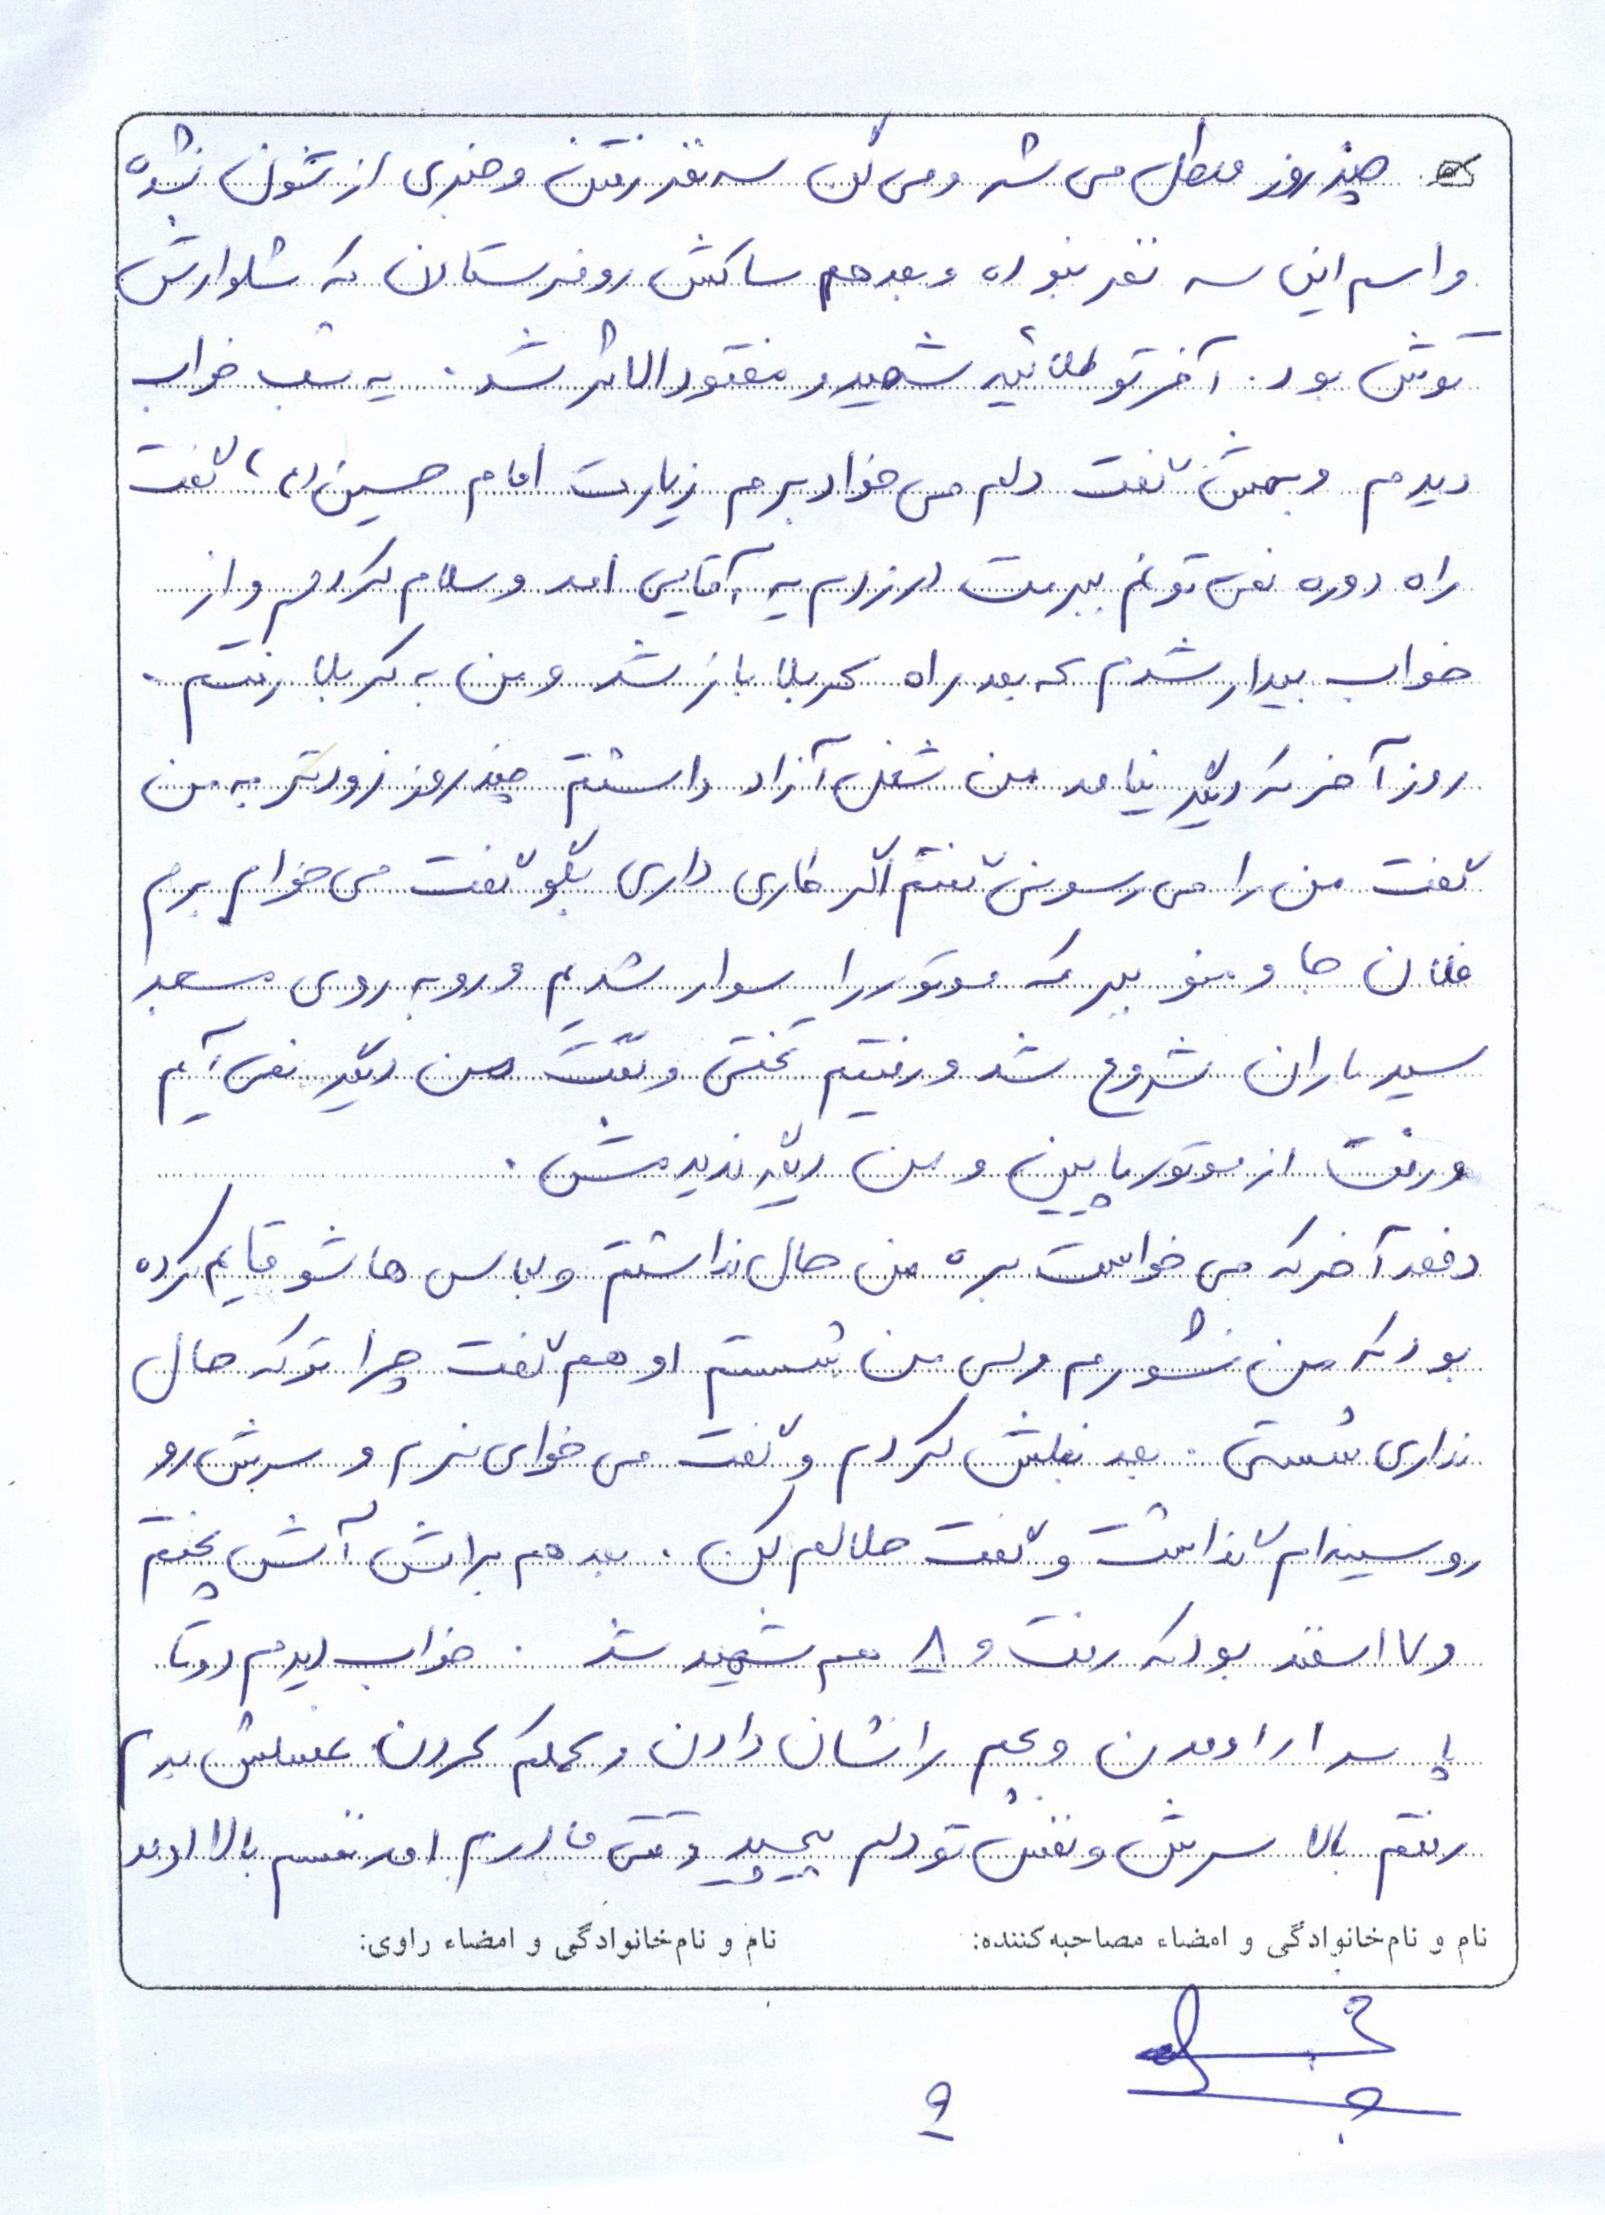 چند روز معطل می شد و می گن سه نفر رفتن و خبری ازشون نشده
و اسم این سه نفر نبوده و بعد هم ساکش رو فرستادن که شلوارش
توش بود. آخر تو طلائیه شهید و مفقودالاثر شد. یه شب خواب
دیدم و بهش گفت دلم می خواد برم زیارت امام حسین (ع)، گفت
راه دوره نمی تونم ببرمت در زدم یه آقایی امد و سلام کردم و از
خواب بیدار شدم که بعد راه کربلا باز شد و من به کربلا رفتم.
روز آخر که دیگر نیامد من شغل آزاد داشتم چند روز زودتر به من
گفت من را می رسونی گفتم اگر کاری داری بگو گفت می خوام برم
فلان جا و منو ببر که موتور را سوار شدیم و روبه روی مسجد
سید باران شروع شد و رفتیم تختی و گفت من دیگر نمی آیم
و رفت از موتور پایین و من دیگر ندیدمش.
دفعه آخر که می خواست بره من حال نداشتم و لباس هاشو قایم کرده
بود که من نشورم ولی من شستم او هم گفت چرا تو که حال
نداری شستی. بعد بغلش کردم و گفت می خوای نرم و سرش رو
رو سینه ام گذاشت و گفت حلالم کن. بعد هم براش آش پختم
و ۷ اسفند بود که رفت و ۸ هم شهید شد. خواب دیدم دو تا
پاسدارا اومدن و بهم را نشان دادن و محکم کردن. غسلش بدم
رفتم بالا سرش و نفس تو دلم پیچید وقتی مادرم امد نفسم بالا اومد
نام و نام‌خانوادگی و امضاء مصاحبه‌کننده:
نام و نام‌خانوادگی و امضاء راوی:
۹